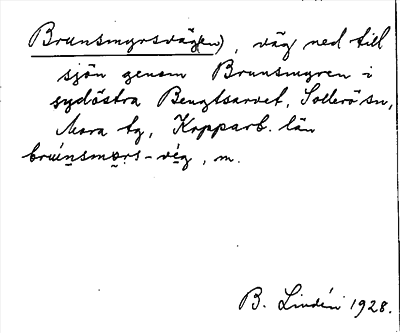 Brunsmyrsväg(en), väg ned till
sjön genom Brunsmyren i
sydöstra Bengtsarvet, Sollerö sn,
Mora tg, Kopparb. län
bruńnsmørs-vég, m.
B. Lindén 1928.